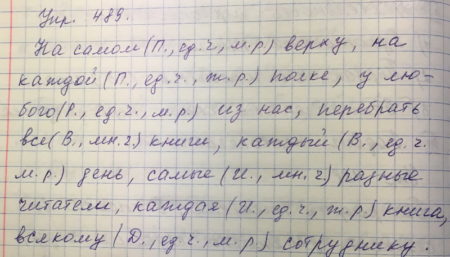 Упр. 489.
На самом (П., ед.ч., м.р.) верху, на
каждой (П., ед.ч., ж.р.) полке, у лю-
бого (Р., ед.ч., м.р.) из нас, перебрать
все (В., мн.ч.) книги, каждый (В., ед.ч.
м.р.) день, самые (И., мн.ч) разные
читатели, каждая (И., ед.ч., ж.р.) книга,
всякому (Д., ед.ч., м.р.) сотруднику.